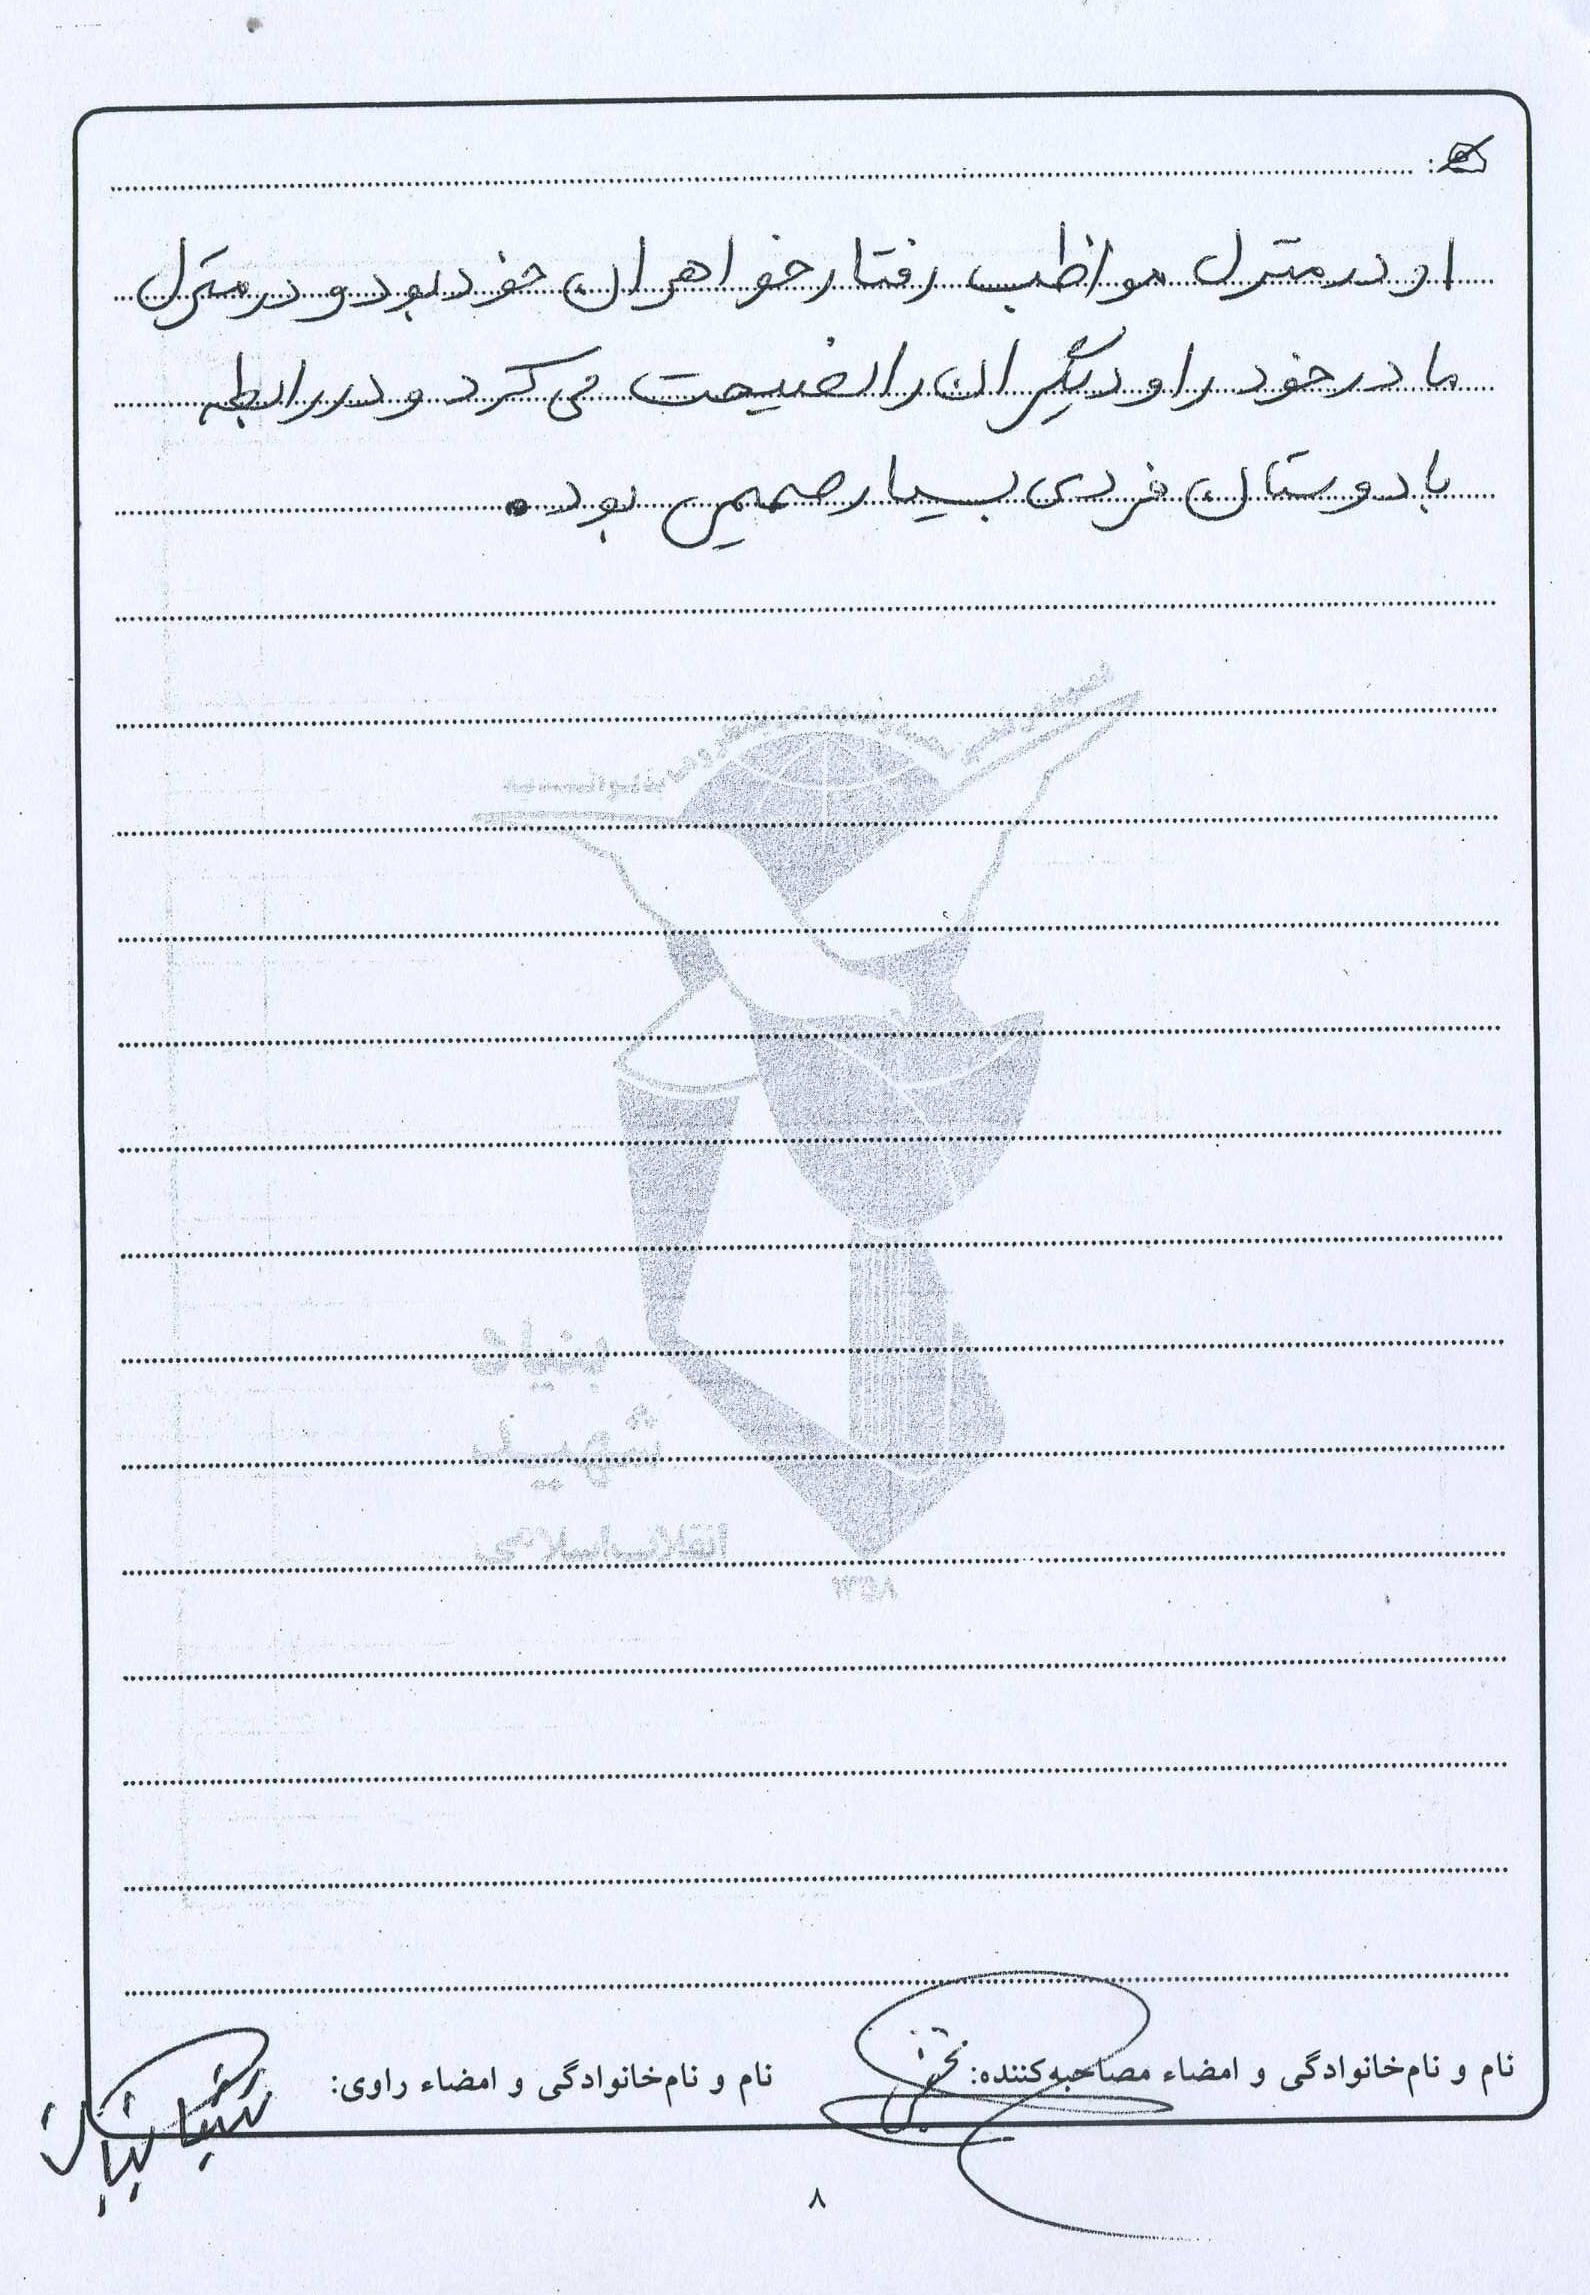 او در منزل مواظب رفتار خواهران خود بود و در منزل
مادر خود را و دیگران را نصیحت می کرد و در رابطه
با دوستان فردی بسیار صمیمی بود.
بنیاد
شهید
انقلاب اسلامی
۱۳۵۸
نام و نام‌خانوادگی و امضاء مصاحبه‌کننده:
نام و نام‌خانوادگی و امضاء راوی:
۸